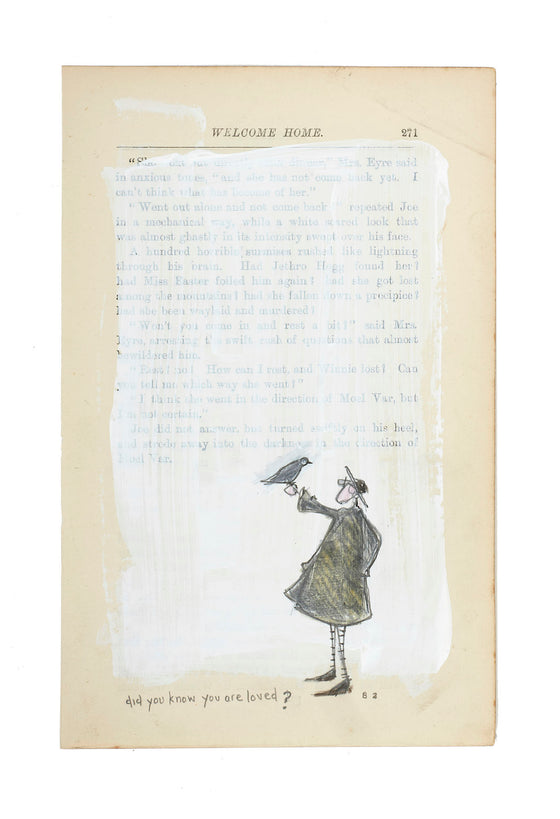 WELCOME HOME. 271
dinner," Mrs. Eyre said
in anxious tones, "and she has not come back yet. I
can't think what has become of her."
"Went out alone and not come back!" repeated Joe
in a mechanical way, while a white scared look that
was almost ghastly in its intensity swept over his face.
A hundred horrible surmises rushed like lightning
through his brain. Had Jethro Hegg found her?
had Miss Easter foiled him again? had she got lost
among the mountains? had she fallen down a precipice?
had she been waylaid and murdered?
"Won't you come in and rest a bit?" said Mrs.
Eyre, arresting the swift rush of questions that almost
bewildered him.
"Rest! no! How can I rest, and Winnie lost! Can
you tell me which way she went?"
"I think she went in the direction of Moel Var, but
I'm not certain."
Joe did not answer, but turned swiftly on his heel,
and strode away into the darkness in the direction of
Moel Var.
did you know you are loved?